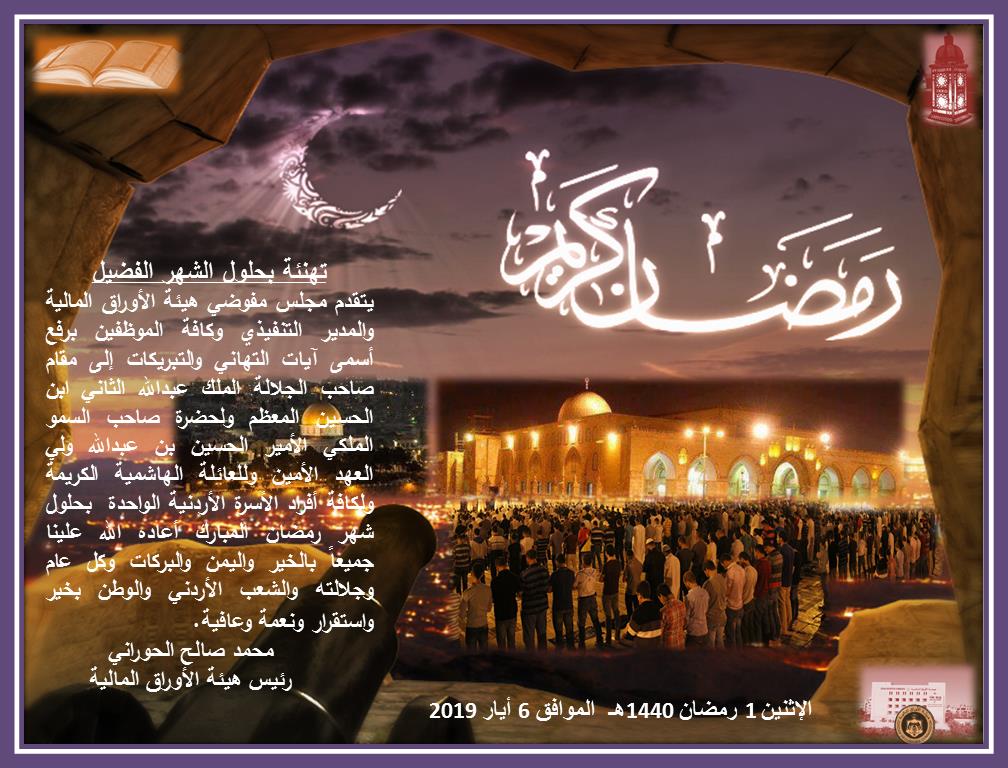 رمضان كريم
تهنئة بحلول الشهر الفضيل
يتقدم مجلس مفوضي هيئة الأوراق المالية
والمدير التنفيذي وكافة الموظفين برفع
أسمى آيات التهاني والتبريكات إلى مقام
صاحب الجلالة الملك عبدالله الثاني ابن
الحسين المعظم ولحضرة صاحب السمو
الملكي الأمير الحسين بن عبدالله ولي
العهد الأمين وللعائلة الهاشمية الكريمة
ولكافة أفراد الأسرة الأردنية الواحدة بحلول
شهر رمضان المبارك أعاده الله علينا
جميعاً بالخير واليمن والبركات وكل عام
وجلالته والشعب الأردني والوطن بخير
واستقرار ونعمة وعافية.
محمد صالح الحوراني
رئيس هيئة الأوراق المالية
الإثنين 1 رمضان 1440هـ الموافق 6 أيار 2019